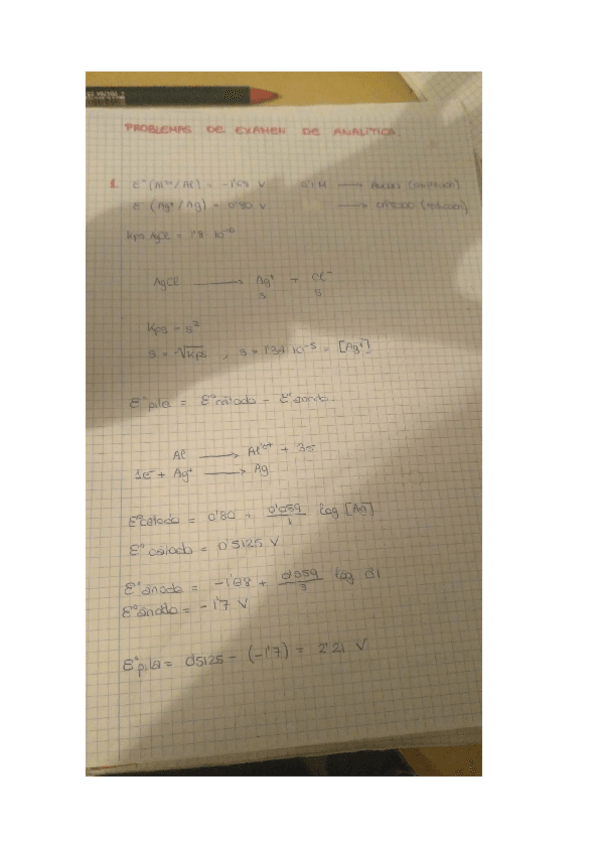 PROBLEMAS DE EXAMEN DE ANALÍTICA.
1. E° (Al³⁺/Al) = -1'68 V 0'1 M → ÁNODO (oxidación)
E° (Ag⁺/Ag) = 0'80 V → CÁTODO (reducción)
Kps AgCl = 1'8·10⁻¹⁰
AgCl → Ag⁺ + Cl⁻
s s
Kps = s²
s = √Kps , s = 1'34·10⁻⁵ = [Ag⁺]
E°pila = E°cátodo - E°ánodo
Al → Al³⁺ + 3e⁻
1e⁻ + Ag⁺ → Ag
E°cátodo = 0'80 + 0'059/1 log [Ag]
E°cátodo = 0'5125 V
E°ánodo = -1'68 + 0'059/3 log 0'1
E°ánodo = -1'7 V
E°pila = 0'5125 - (-1'7) = 2'21 V